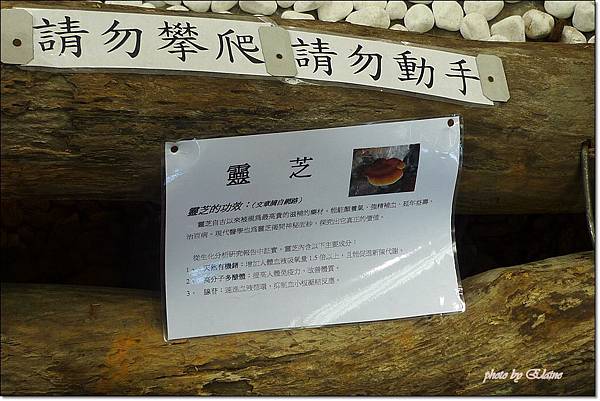 請勿攀爬
請勿動手
靈芝
靈芝的功效：(文章摘自網路)
靈芝自古以來被視為最高貴的滋補的藥材。能駐顏養氣、強精補血、延年益壽、
治百病。現代醫學也為靈芝揭開神秘面紗，探究出它真正的價值。
從生化分析研究報告中証實，靈芝內含以下主要成分：
1、 天然有機鍺：增加人體血液吸氧量1.5倍以上，且能促進新陳代謝。
2、 高分子多醣體：提高人體免疫力，改善體質。
3、 腺苷：速進血液循環，抑制血小板凝結反應。
photo by Elaine